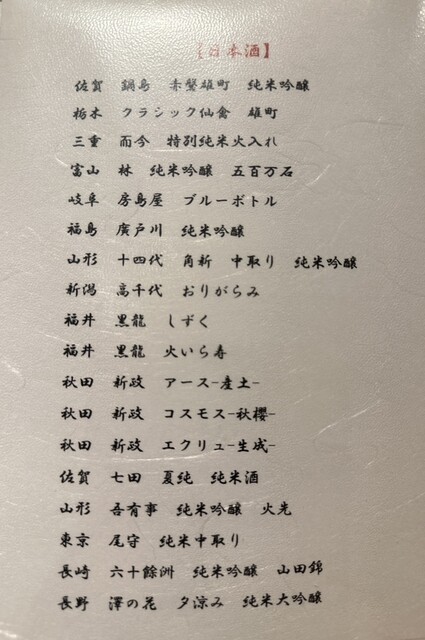 【日本酒】
佐賀 鍋島 赤磐雄町 純米吟醸
栃木 クラシック仙禽 雄町
三重 而今 特別純米火入れ
富山 林 純米吟醸 五百万石
岐阜 房島屋 ブルーボトル
福島 廣戸川 純米吟醸
山形 十四代 角新 中取り 純米吟醸
新潟 高千代 おりがらみ
福井 黒龍 しずく
福井 黒龍 火いら寿
秋田 新政 アース-産土-
秋田 新政 コスモス-秋櫻-
秋田 新政 エクリュ-生成-
佐賀 七田 夏純 純米酒
山形 吾有事 純米吟醸 火先
東京 尾守 純米中取り
長崎 六十餘洲 純米吟醸 山田錦
長野 澤の花 夕涼み 純米大吟醸